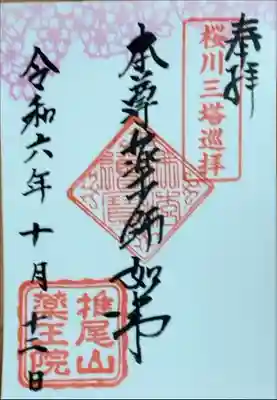 奉拝
桜川三塔巡拝
本尊薬師如来
令和六年十月十二日
椎尾山
薬王院